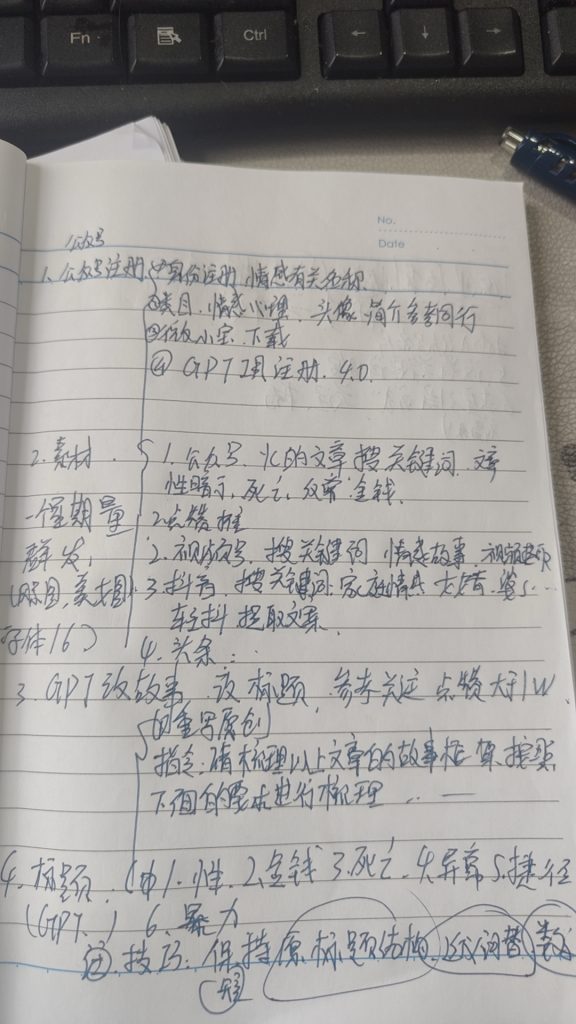 Fn
Ctrl
←
↓
→
No.
Date
公众号
1. 公众号注册 ①身份注册 情感有关名称
②类目. 情感心理. 头像 简介参考同行
下载
④ GPT 4.0 注册. 4.0.
2. 素材 1. 公众号. 的文章搜关键词
性暗示, 死亡, 金钱.
一个星期量 2点赞推
群发, 2. 视频号, 搜关键词 情感故事
3. 抖音, 搜关键词 家庭情感
字体16) 轻抖 提取文案
4. 头条
3. GPT改故事 改标题, 参考关注 点赞大于1W
的重写原创
指令: 请梳理以上文章的故事框架, 按照
下面的要求进行梳理 ... —
4. 标题. 1. 性. 2. 金钱 3. 死亡. 4. 异常 5. 捷径
(GPT.) 6. 暴力
技巧: 保持原标题结构. 近义词替